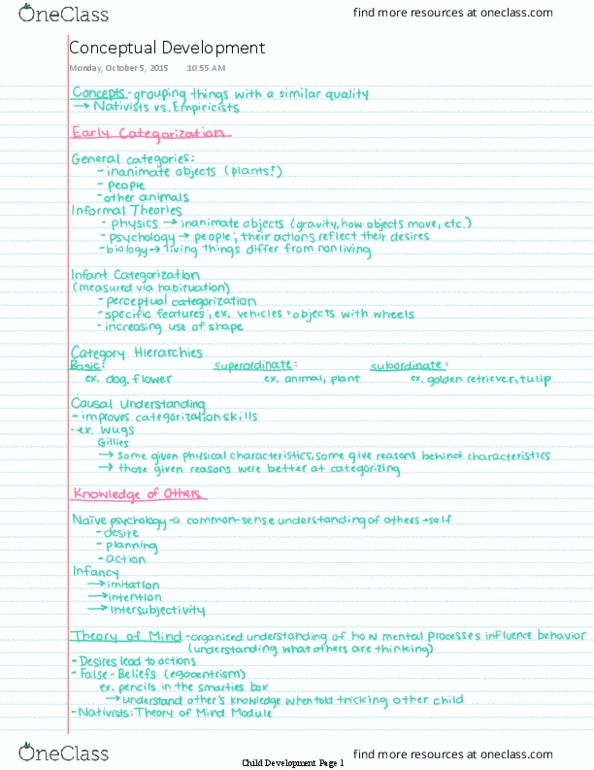 OneClass
find more resources at oneclass.com
Conceptual Development
Monday, October 5, 2015 10:55 AM
Concepts - grouping things with a similar quality
→ Nativists vs. Empiricists
Early Categorization
General categories:
- inanimate objects (plants?)
- people
- other animals
Informal Theories
- physics → inanimate objects (gravity, how objects move, etc.)
- psychology → people; their actions reflect their desires
- biology → living things differ from nonliving
Infant Categorization
(measured via habituation)
- perceptual categorization
- specific features; ex. vehicles = objects with wheels
- increasing use of shape
Category Hierarchies
Basic: superordinate: subordinate:
ex. dog, flower ex. animal, plant ex. golden retriever, tulip
Causal Understanding
- improves categorization skills
- ex. Wugs
Gillies
→ some given physical characteristics, some give reasons behind characteristics
→ those given reasons were better at categorizing
Knowledge of Others
Naïve psychology - a common-sense understanding of others + self
- desire
- planning
- action
Infancy
→ imitation
→ intention
→ intersubjectivity
Theory of Mind - organized understanding of how mental processes influence behavior
(understanding what others are thinking)
- Desires lead to actions
- False-Beliefs (egocentrism)
ex. pencils in the smarties box
→ understand other's knowledge when told tricking other child
- Nativists: Theory of Mind Module
OneClass
Child Development Page 1
find more resources at oneclass.com